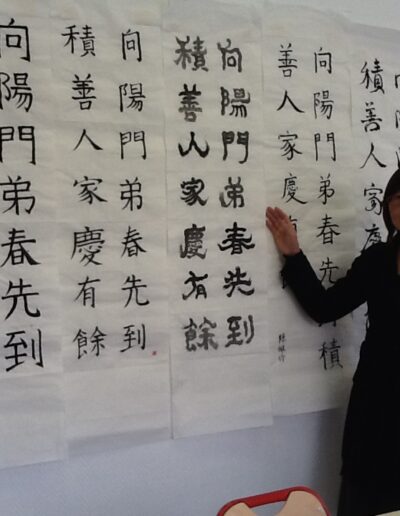 積善人家慶
向陽門弟春先到積
善人家慶有
向陽門弟春先到
積善人家慶有餘
向陽門弟春先到
積善人家慶有餘
向陽門弟春先到